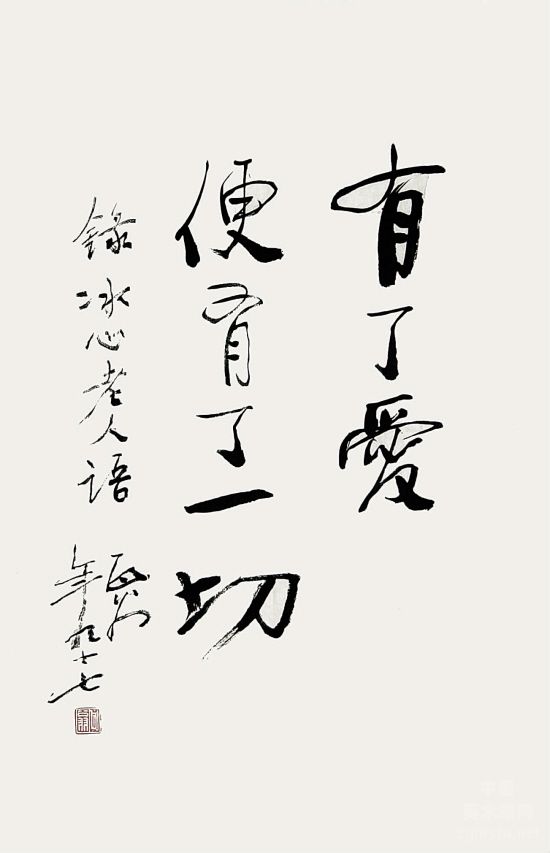 有了愛
便有了一切
錄冰心老人语
年九十七